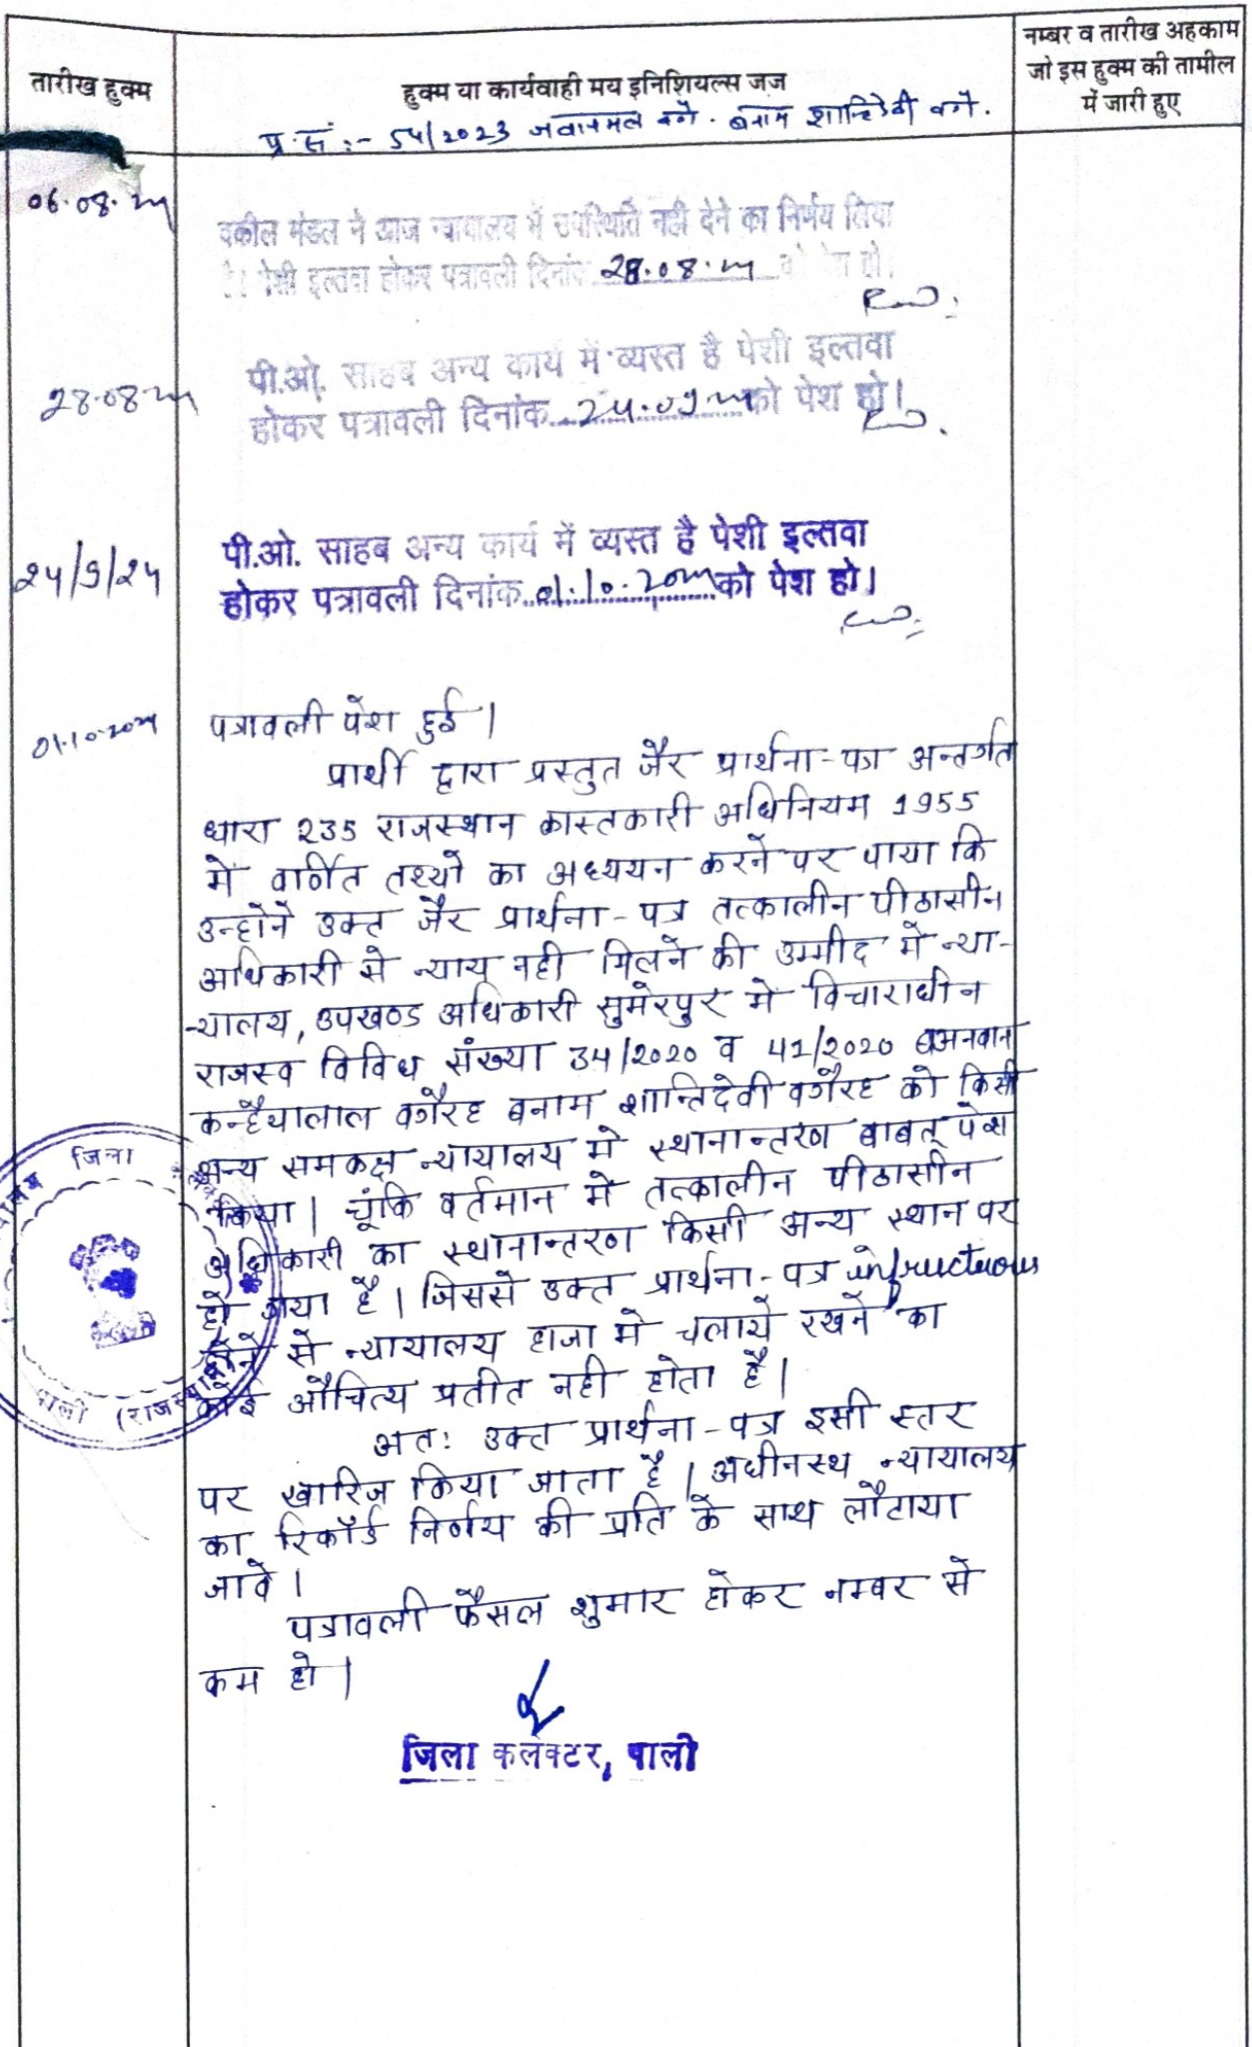 तारीख हुक्म
हुक्म या कार्यवाही मय इनिशियल्स जज
नम्बर व तारीख अहकाम
जो इस हुक्म की तामील
में जारी हुए
प्र.सं.:- 54/2023 जवानमल वगै. बनाम शान्तिदेवी वगै.
06.08.24
वकील मंडल ने आज न्यायालय में उपस्थिति नही देने का निर्णय लिया
है। पेशी इल्तवा होकर पत्रावली दिनांक 28.08.24 को पेश हो।
28.08.24
पी.ओ. साहब अन्य कार्य में व्यस्त है पेशी इल्तवा
होकर पत्रावली दिनांक 24.09.24 को पेश हो।
24/9/24
पी.ओ. साहब अन्य कार्य में व्यस्त है पेशी इल्तवा
होकर पत्रावली दिनांक 01.10.2024 को पेश हो।
01.10.2024
पत्रावली पेश हुई।
प्रार्थी द्वारा प्रस्तुत जैर प्रार्थना-पत्र अन्तर्गत
धारा 235 राजस्थान कास्तकारी अधिनियम 1955
में वर्णित तथ्यों का अध्ययन करने पर पाया कि
उन्होंने उक्त जैर प्रार्थना-पत्र तत्कालीन पीठासीन
अधिकारी से न्याय नही मिलने की उम्मीद में न्या-
-यालय, उपखण्ड अधिकारी सुमेरपुर में विचाराधीन
राजस्व विविध संख्या 34/2020 व 41/2020 बअनवान
कन्हैयालाल वगैरह बनाम शान्तिदेवी वगैरह को किसी
अन्य समकक्ष न्यायालय में स्थानान्तरण बाबत् पेश
किया। चूंकि वर्तमान में तत्कालीन पीठासीन
अधिकारी का स्थानान्तरण किसी अन्य स्थान पर
हो गया है। जिससे उक्त प्रार्थना-पत्र infructuous
होने से न्यायालय हाजा में चलाये रखने का
कोई औचित्य प्रतीत नही होता है।
अतः उक्त प्रार्थना-पत्र इसी स्तर
पर खारिज किया जाता है। अधीनस्थ न्यायालय
का रिकॉर्ड निर्णय की प्रति के साथ लौटाया
जावे।
पत्रावली फैसल शुमार होकर नम्बर से
कम हो।
जिला कलक्टर, पाली
जिला
पाली (राजस्थान)